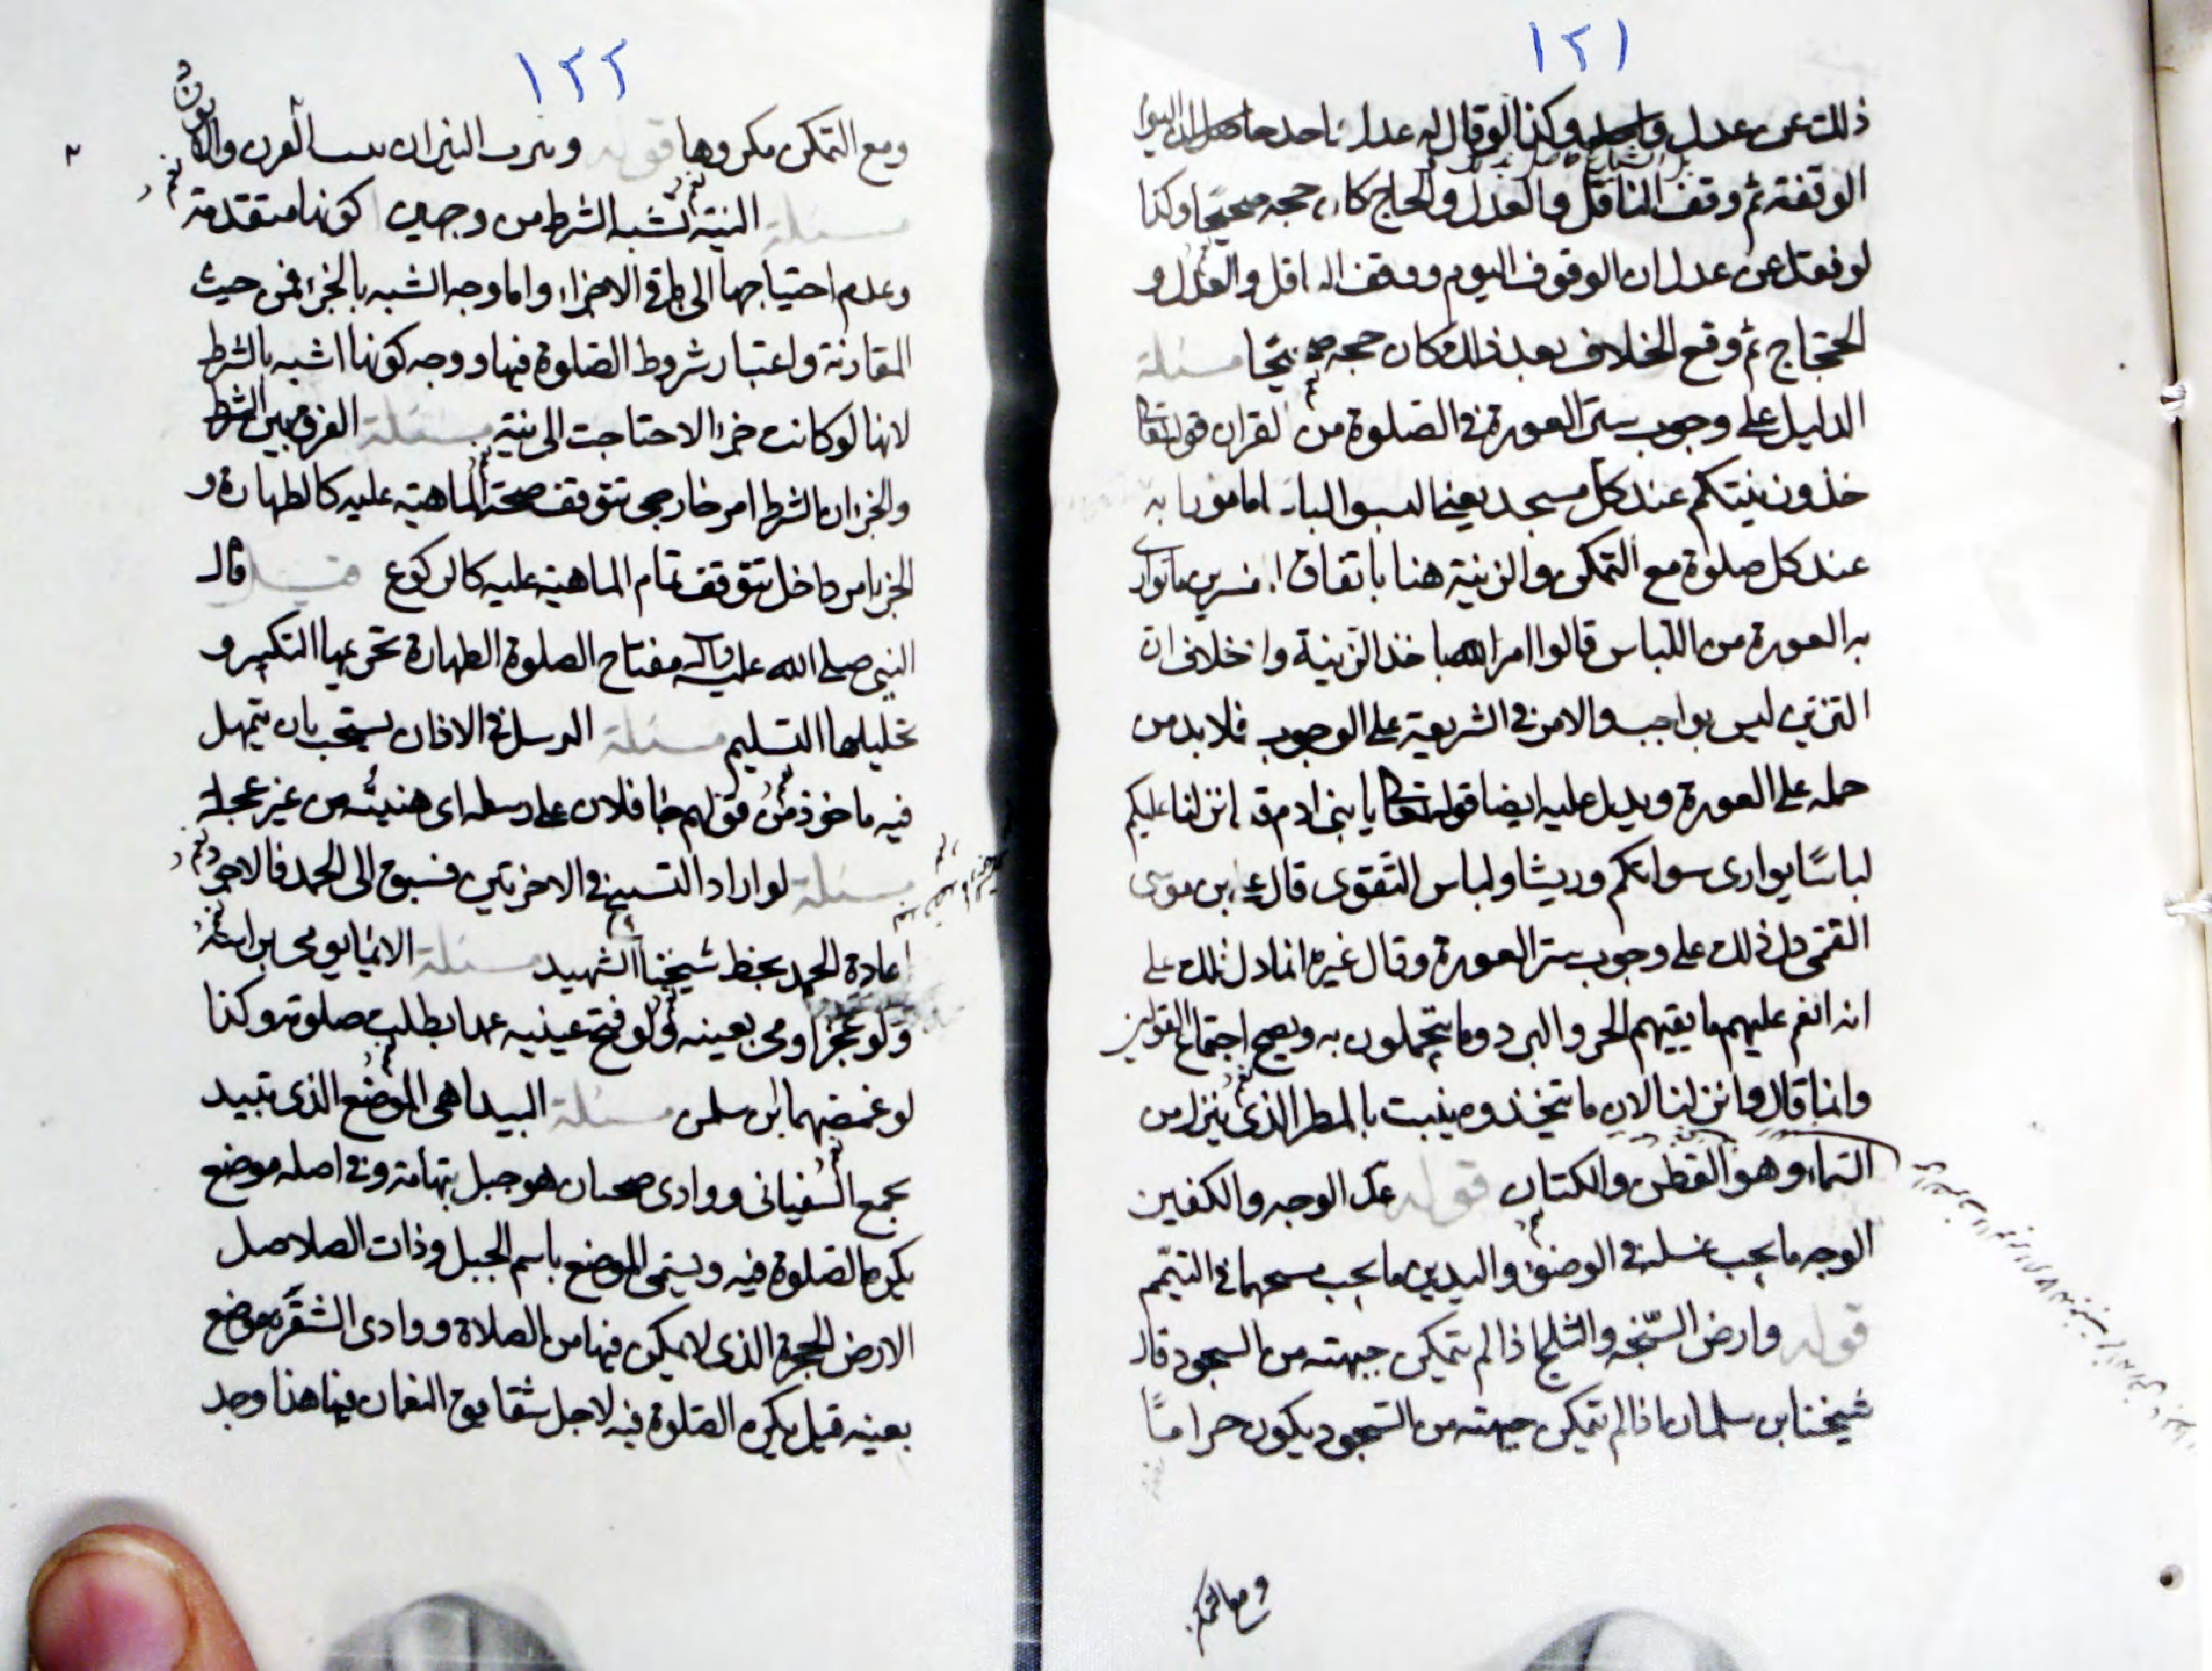 ١٢١
ذلك عن عدل وكذا لو قال له عدل
الوقفة ثم وقف الناقل والعدل والحاج كان حجه صحيحا وكذا
لو نقل عن عدل ان الوقوف اليوم ووقف الناقل والعدل و
الحجاج ثم وقع الخلاف بعد ذلك كان حجه صحيحا مسئلة
الدليل على وجوب ستر العورة في الصلوة من القران قوله تعالى
خذوا زينتكم عند كل مسجد يعني البسوا اللباس المامور به
عند كل صلوة مع التمكن والزينة هنا باتفاق المفسرين ما توارى
به العورة من اللباس قالوا امر الله باخذ الزينة ولا خلاف ان
التزين ليس بواجب والامر في الشريعة على الوجوب فلا بد من
حمله على العورة ويدل عليه ايضا قوله تعالى يا بني ادم قد انزلنا عليكم
لباسًا يوارى سواتكم وريشا ولباس التقوى قال على بن موسى
القمي دل ذلك على وجوب ستر العورة وقال غيره انما دل ذلك على
انه انعم عليهم ما يقيهم الحر والبرد وما يتجملون به ويصح اجتماع القولين
وانما قال وانزلنا لان ما يتخذ منه ينبت بالمطر الذي ينزل من
السماء وهو القطن والكتان قوله عدا الوجه والكفين
الوجه ما يجب غسله في الوضوء واليدين ما يجب مسحهما في التيمم
قوله وارض السبخه والثلج اذا لم يتمكن جبهته من السجود قال
شيخنا بن سلمان اذا لم يتمكن جبهته من السجود يكون حرامًا
ومع التمكن
١٢٢
ومع التمكن مكروها قوله وبيوت النيران
مسئلة النية تشبه الشرط من وجهين كونها متقدمة
وعدم احتياجها الى باقي الاجزاء واما وجه الشبه بالجزء فمن حيث
المقارنة واعتبار شروط الصلوة فيها ووجه كونها اشبه بالشرط
لانها لو كانت جزءا لاحتاجت الى نية مسئلة الفرق بين الشرط
والجزء ان الشرط امر خارجي تتوقف صحة الماهية عليه كالطهارة و
الجزء امر داخل تتوقف تمام الماهية عليه كالركوع قال
النبي صلى الله عليه وآله مفتاح الصلوة الطهارة تحريمها التكبير و
تحليلها التسليم مسئلة الترسل في الاذان يستحب بان يتمهل
فيه ماخوذ من قولهم جا فلان على رسله اى هنيئة من غير عجلة
مسئلة لو اراد التسبيح في الاخرتين فسبق الى الحمد فالاجود
اعادة الحمد بخط شيخنا الشهيد مسئلة الايما يومى براسه
ولو عجز اومى بعينه ولو فتح عينيه عمدا بطلت صلوته وكذا
لو غمضهما ابن سلمن مسئلة البيدا هي الموضع الذى تبيد
بجمع السفياني ووادى ضجنان هو جبل بتهامة وفي اصله موضع
يكره الصلوة فيه ويسمى الموضع باسم الجبل وذات الصلاصل
الارض الحجرة الذى لا يمكن فيها من الصلاة ووادى الشقرة موضع
بعينه قيل يكره الصلوة فيه لاجل شقايق النعمان